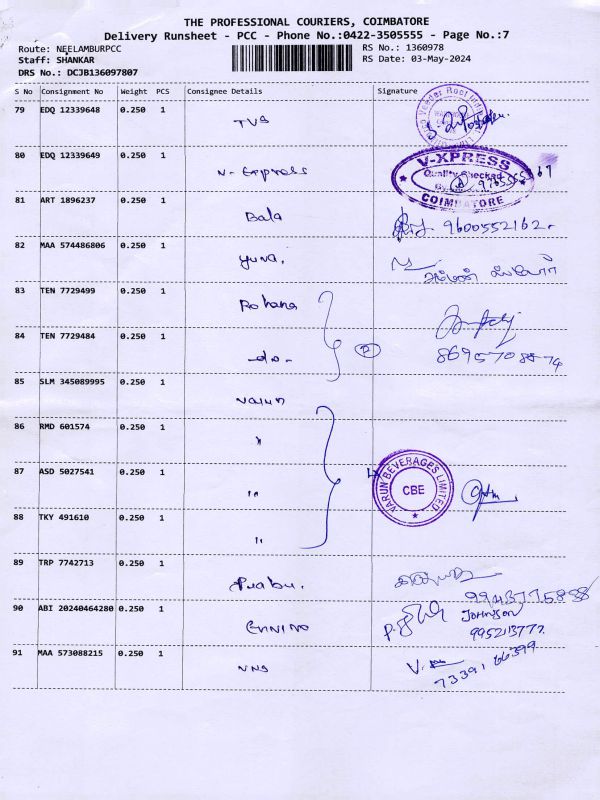 THE PROFESSIONAL COURIERS, COIMBATORE
Delivery Runsheet - PCC - Phone No.:0422-3505555 - Page No.:7
Route: NEELAMBURPCC RS No.: 1360978
Staff: SHANKAR RS Date: 03-May-2024
DRS No.: DCJB136097807
S No Consignment No Weight PCS Consignee Details Signature
79 EDQ 12339648 0.250 1 TVS
80 EDQ 12339649 0.250 1 V-Express V-XPRESS Quality Checked By COIMBATORE
81 ART 1896237 0.250 1 Bala 9600552162
82 MAA 574486806 0.250 1 yuva.
83 TEN 7729499 0.250 1 Rohana
84 TEN 7729484 0.250 1 -do- (2)
85 SLM 345089995 0.250 1 Varun
86 RMD 601574 0.250 1 "
87 ASD 5027541 0.250 1 " 4 VARUN BEVERAGES LIMITED CBE
88 TKY 491610 0.250 1 "
89 TRP 7742713 0.250 1 Prabu.
90 ABI 20240464280 0.250 1 JOHNSON
995213777
91 MAA 573088215 0.250 1 VNS
7339166399